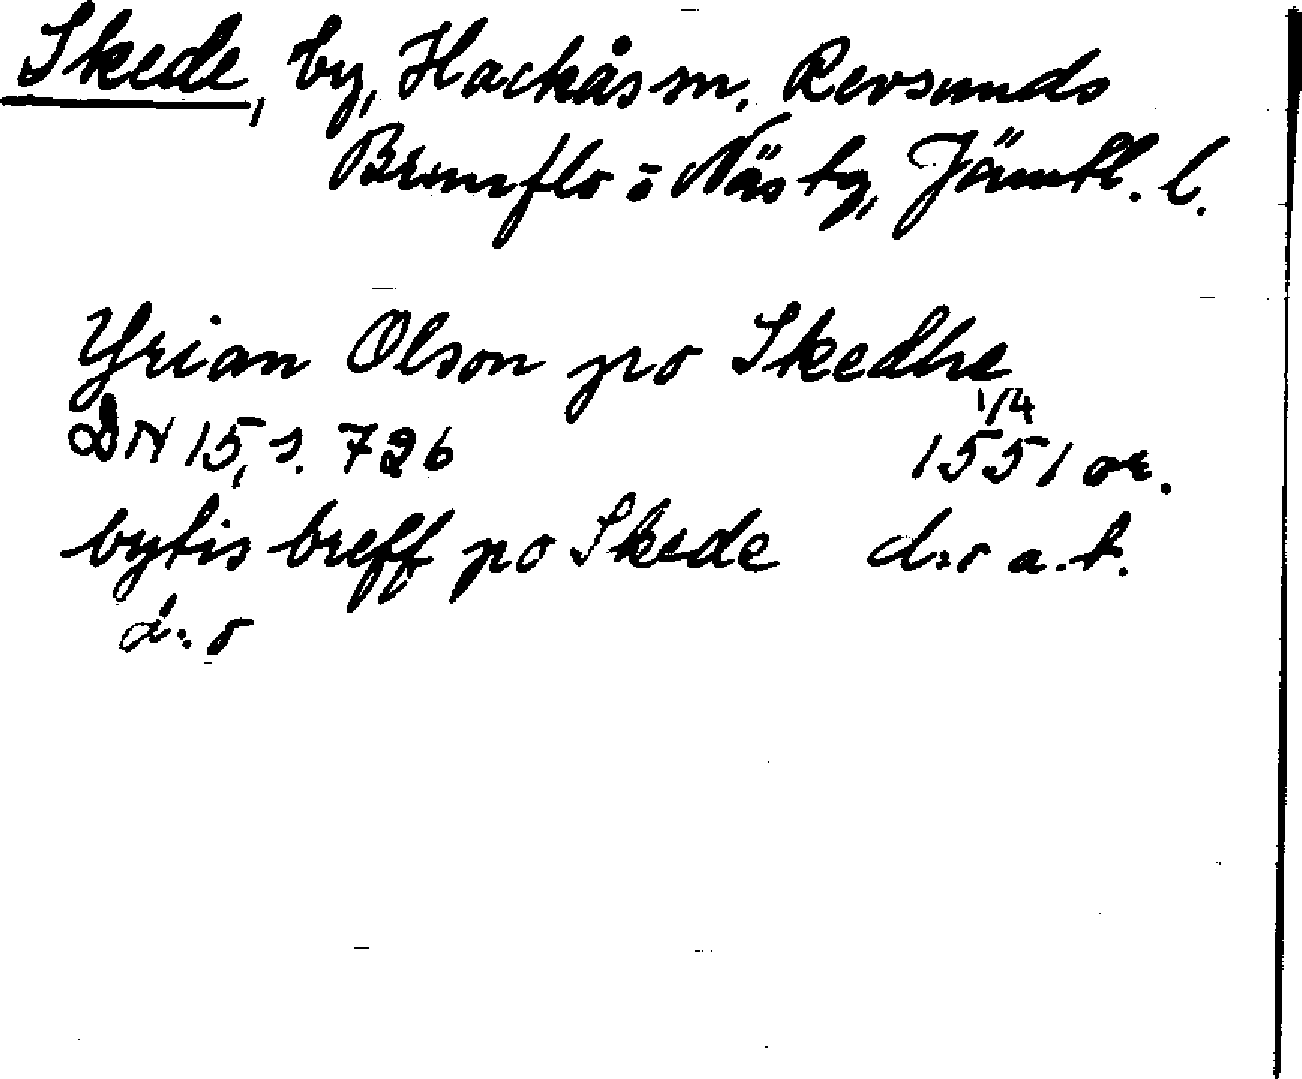 Skede, by, Hackås sn. Revsunds
Brunflo o Näs tg, Jämtl. l.
Yrian Olson po Skedhe
DN 15, s. 726 1551 1/4 or.
bytis breff po Skede d:o a.t.
d:o